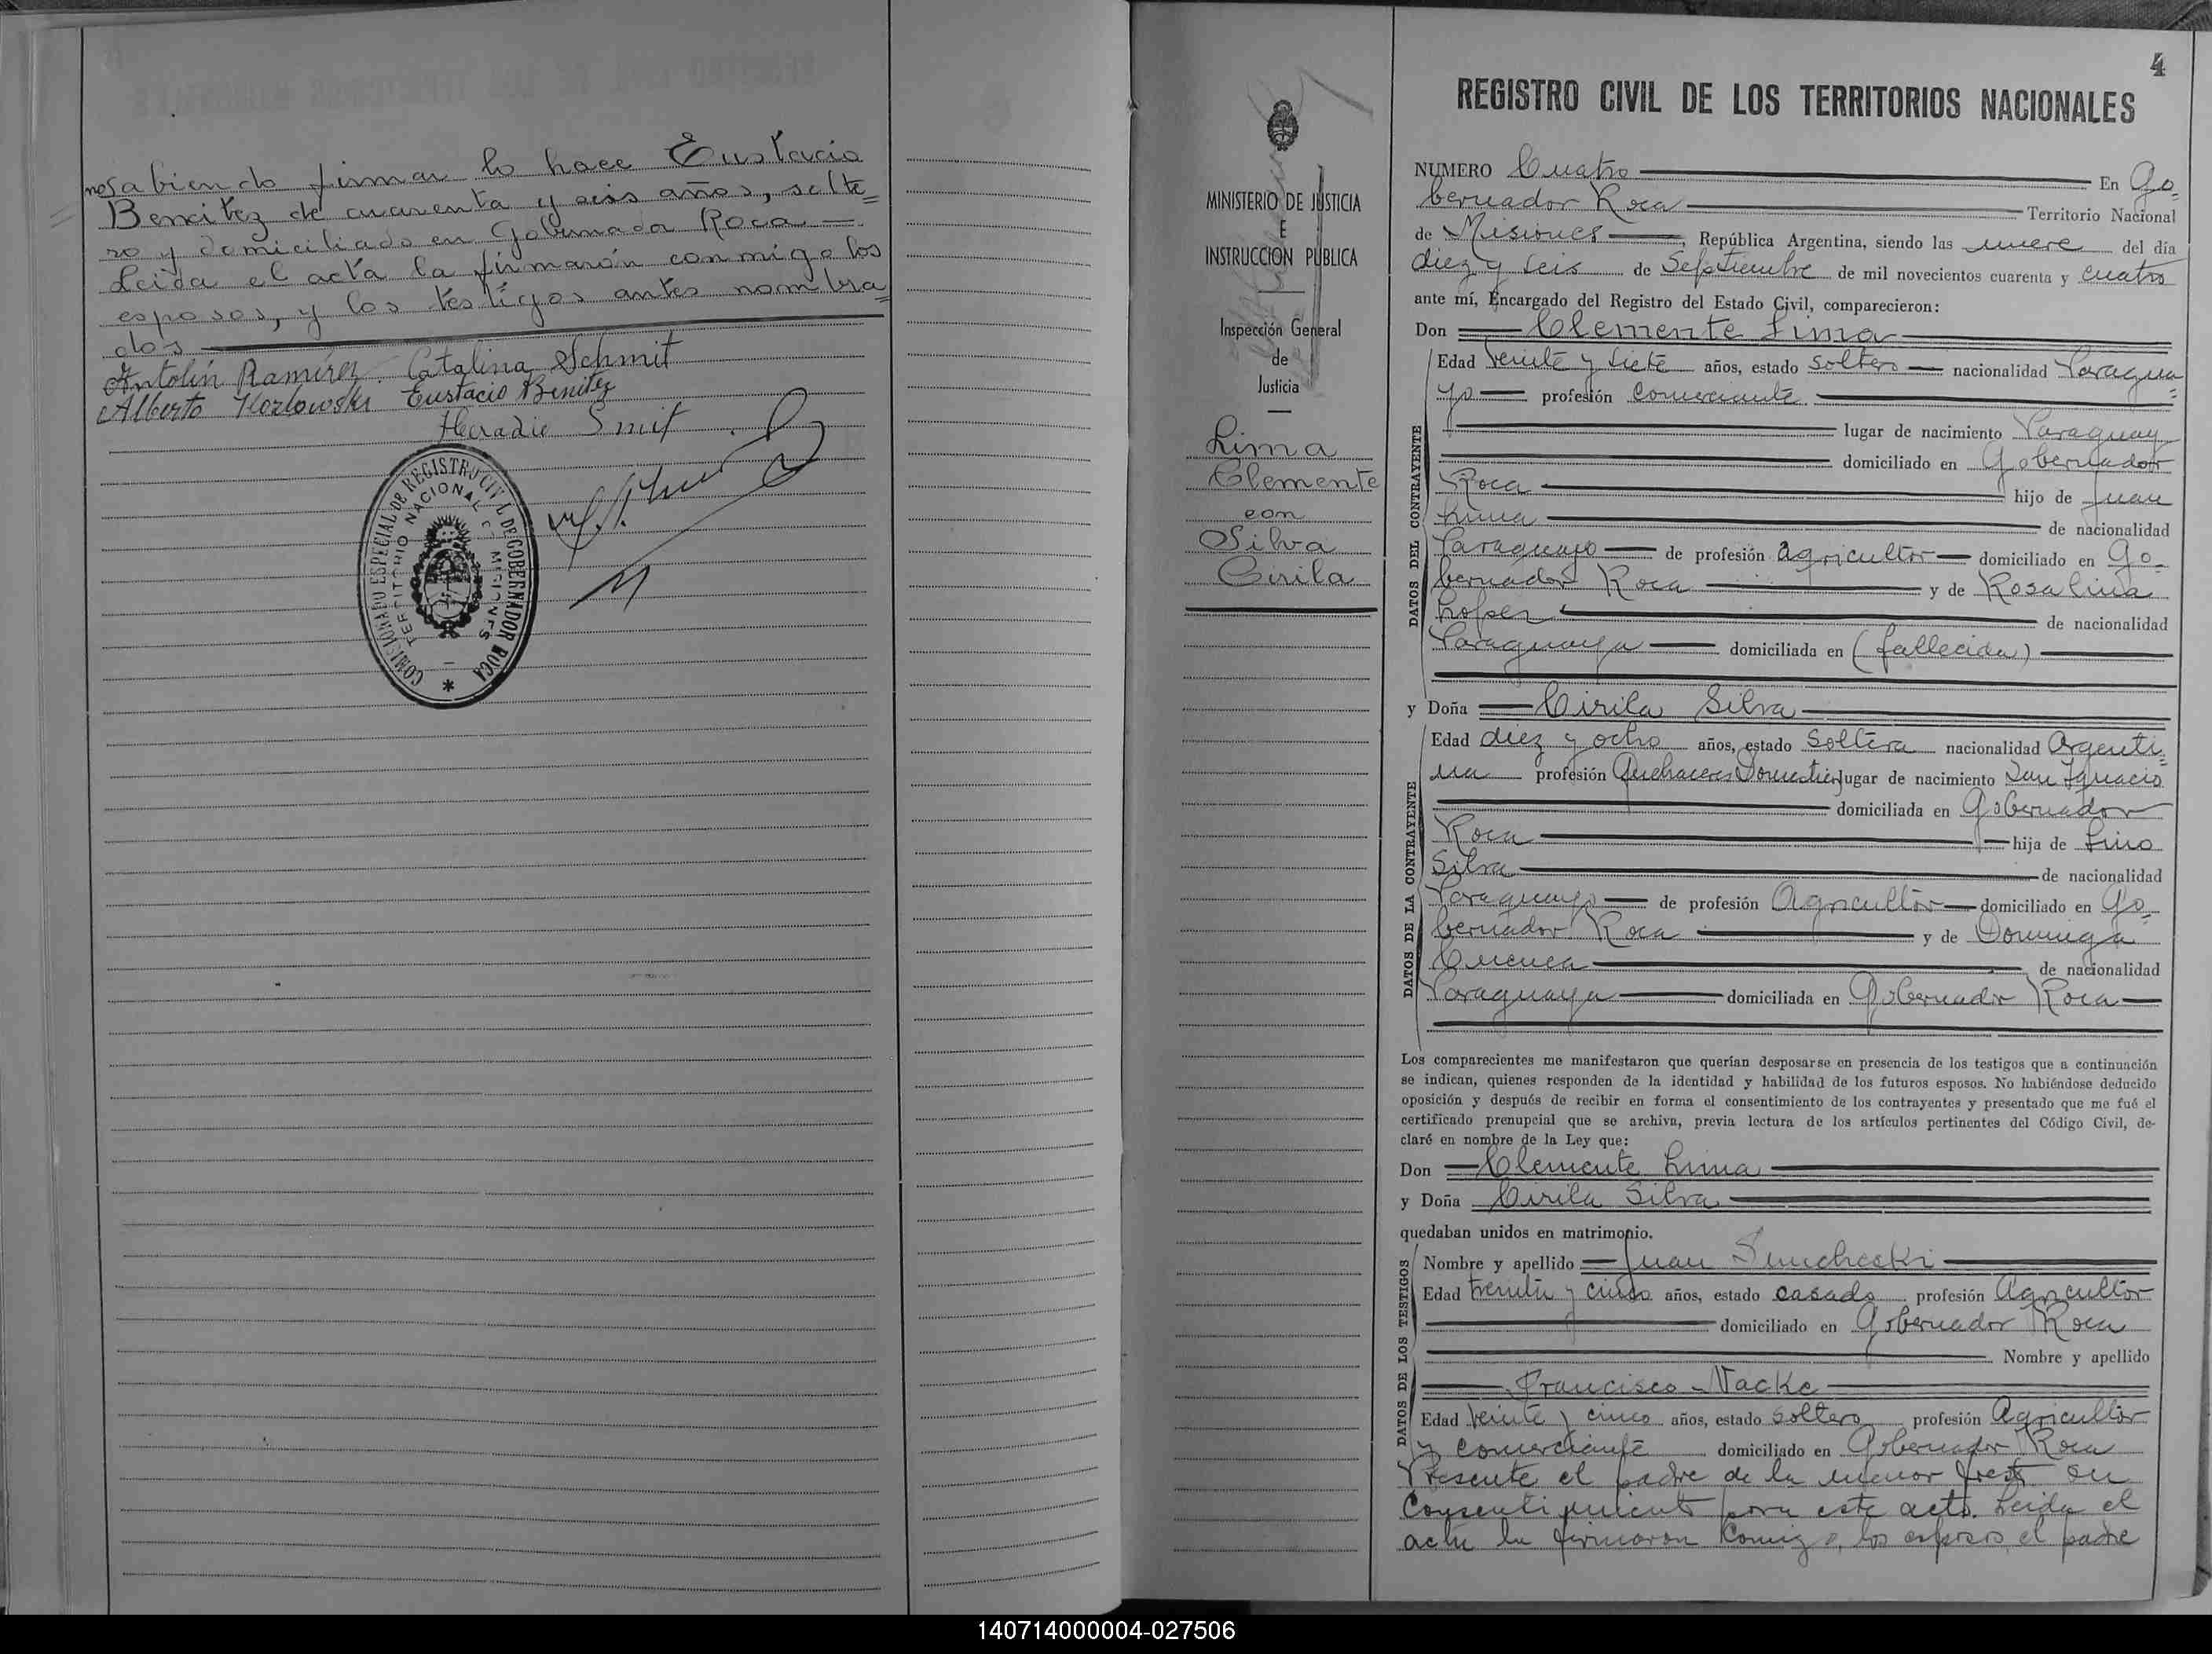 no sabiendo firmar lo hace Eustacio
Benitez de cuarenta y seis años, solte=
ro y domiciliado en Gobernador Roca =
Leida el acta la firmarón conmigo los
esposos, y los testigos antes nombra=
dos
Antolín Ramírez. Catalina Schmit
Alberto Kozlowski Eustacio Benitez
Heradio Smit
COMISIONADO ESPECIAL DE REGISTRO CIVIL DE GOBERNADOR ROCA
TERRITORIO NACIONAL DE MISIONES
*
4
MINISTERIO DE JUSTICIA
E
INSTRUCCIÓN PÚBLICA
Inspección General
de
Justicia
Lima
Clemente
con
Silva
Cirila
REGISTRO CIVIL DE LOS TERRITORIOS NACIONALES
NUMERO Cuatro En Go=
bernador Roca Territorio Nacional
de Misiones, República Argentina, siendo las nueve del día
diez y seis de Septiembre de mil novecientos cuarenta y cuatro
ante mí, Encargado del Registro del Estado Civil, comparecieron:
Don Clemente Lima
DATOS DEL CONTRAYENTE
Edad veinte y siete años, estado soltero nacionalidad Paragua=
yo profesión Comerciante
lugar de nacimiento Paraguay
domiciliado en Gobernador
Roca hijo de Juan
Lima de nacionalidad
Paraguayo de profesión agricultor domiciliado en Go=
bernador Roca y de Rosalina
Lopez de nacionalidad
Paraguaya domiciliada en (fallecida)
y Doña Cirila Silva
DATOS DE LA CONTRAYENTE
Edad diez y ocho años, estado Soltera nacionalidad Argenti=
na profesión Quehaceres Domestic lugar de nacimiento San Ignacio
domiciliada en Gobernador
Roca hija de Lino
Silva de nacionalidad
Paraguayo de profesión Agricultor domiciliado en Go=
bernador Roca y de Dominga
Cuenca de nacionalidad
Paraguaya domiciliada en Gobernador Roca
Los comparecientes me manifestaron que querían desposarse en presencia de los testigos que a continuación
se indican, quienes responden de la identidad y habilidad de los futuros esposos. No habiéndose deducido
oposición y después de recibir en forma el consentimiento de los contrayentes y presentado que me fué el
certificado prenupcial que se archiva, previa lectura de los artículos pertinentes del Código Civil, de-
claré en nombre de la Ley que:
Don Clemente Lima
y Doña Cirila Silva
quedaban unidos en matrimonio.
DATOS DE LOS TESTIGOS
Nombre y apellido Juan
Edad treinta y cinco años, estado casado profesión Agricultor
domiciliado en Gobernador Roca
Nombre y apellido
Francisco Nacke
Edad veinte y cinco años, estado soltero profesión Agricultor
y comerciante domiciliado en Gobernador Roca
Presente el padre de la menor su
Consentimiento para este acto. Leida el
acta la firmaron Conmigo, los esposos, el padre
140714000004-027506